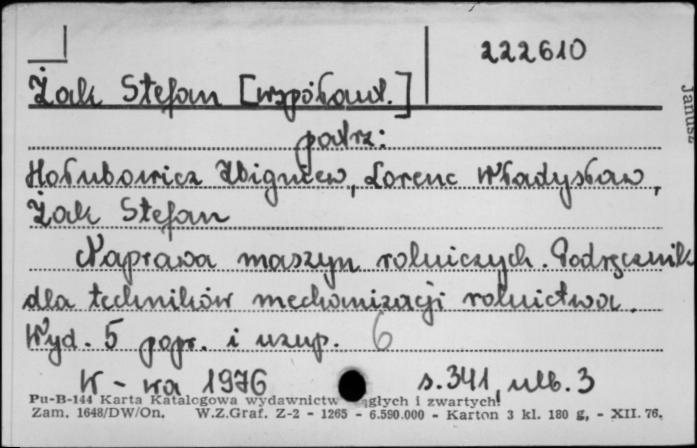 222610
Żak Stefan [współaut.]
patrz:
Hołubowicz Zbigniew, Lorenc Władysław,
Żak Stefan
Naprawa maszyn rolniczych. Podręcznik
dla techników mechanizacji rolnictwa.
Wyd. 5 popr. i uzup. 6
W-wa 1976 s. 341, nlb. 3
Pu-B-144 Karta Katalogowa wydawnictw ągłych i zwartych
Zam. 1648/DW/On. W.Z.Graf. Z-2 - 1265 - 6.590.000 - Karton 3 kl. 180 g, - XII. 76.
Janusz